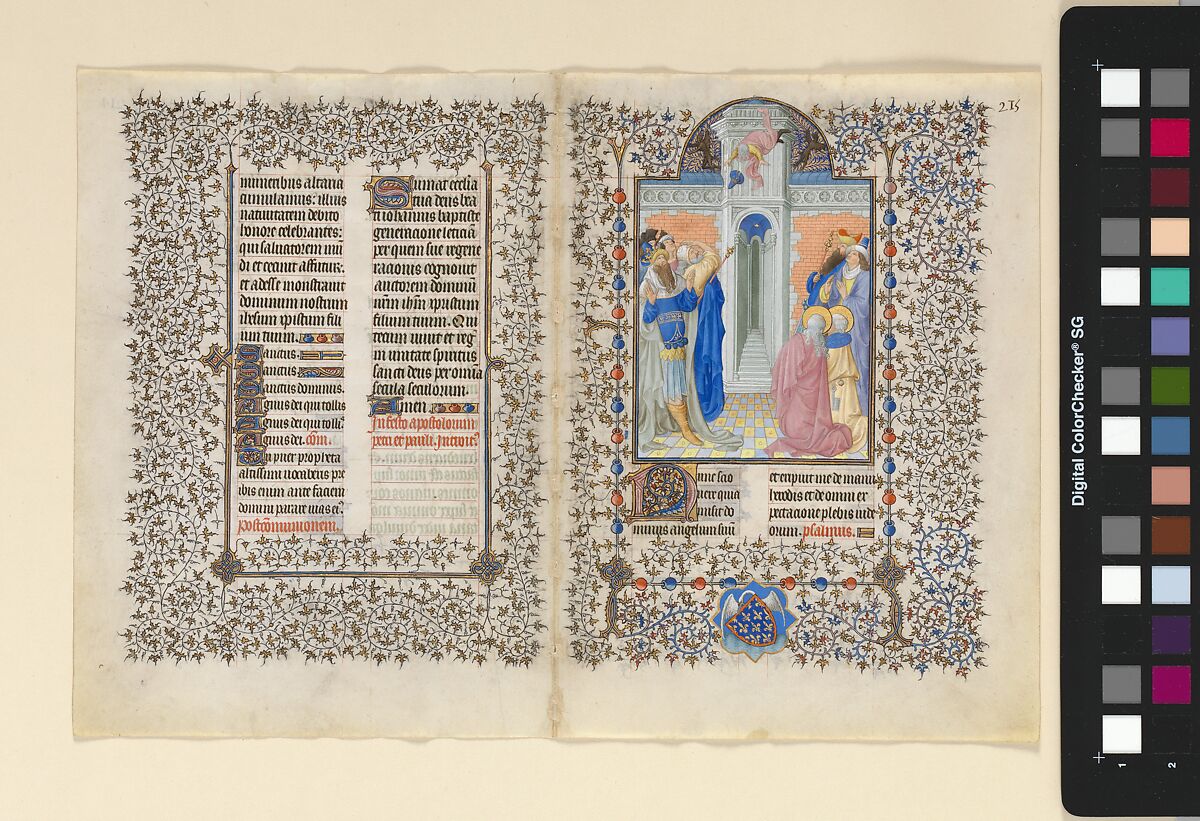 muneribus altaria
cumulamus: illius
natiuitatem debito
honore celebrantes:
qui saluatorem mū
di et cecinit affuturū.
et adesse monstrauit
dominum nostrum
ihesum xpistum fili
um tuum.
Sanctus.
Sanctus.
Sanctus dominus.
Agnus dei qui tollis
Agnus dei qui tolli
Agnus dei. com.
Tu puer propheta
altissimi uocaberis pre
ibis enim ante faciem
domini parare uias eiꝰ
postcōmunionem.
Sumat ecclīa
tua deus bea
ti iohannis baptiste
generacione leticiā
per quem sue regene
racionis cognouit
auctorem dominū
nr̄m ihm̄ xpristum
filium tuum. Qui
tecum uiuit et reḡ
in unitate spiritus
sancti deus per omnia
secula seculorum.
Amen
In festo apostolorum
petri et pauli. Introitꝰ
215
Nunc scio
uere quia
misit do
minus angelum suū
et eripuit me de manu
herodis et de omni ex
pectacione plebis iude
orum. psalmus.
Digital ColorChecker® SG
1
2